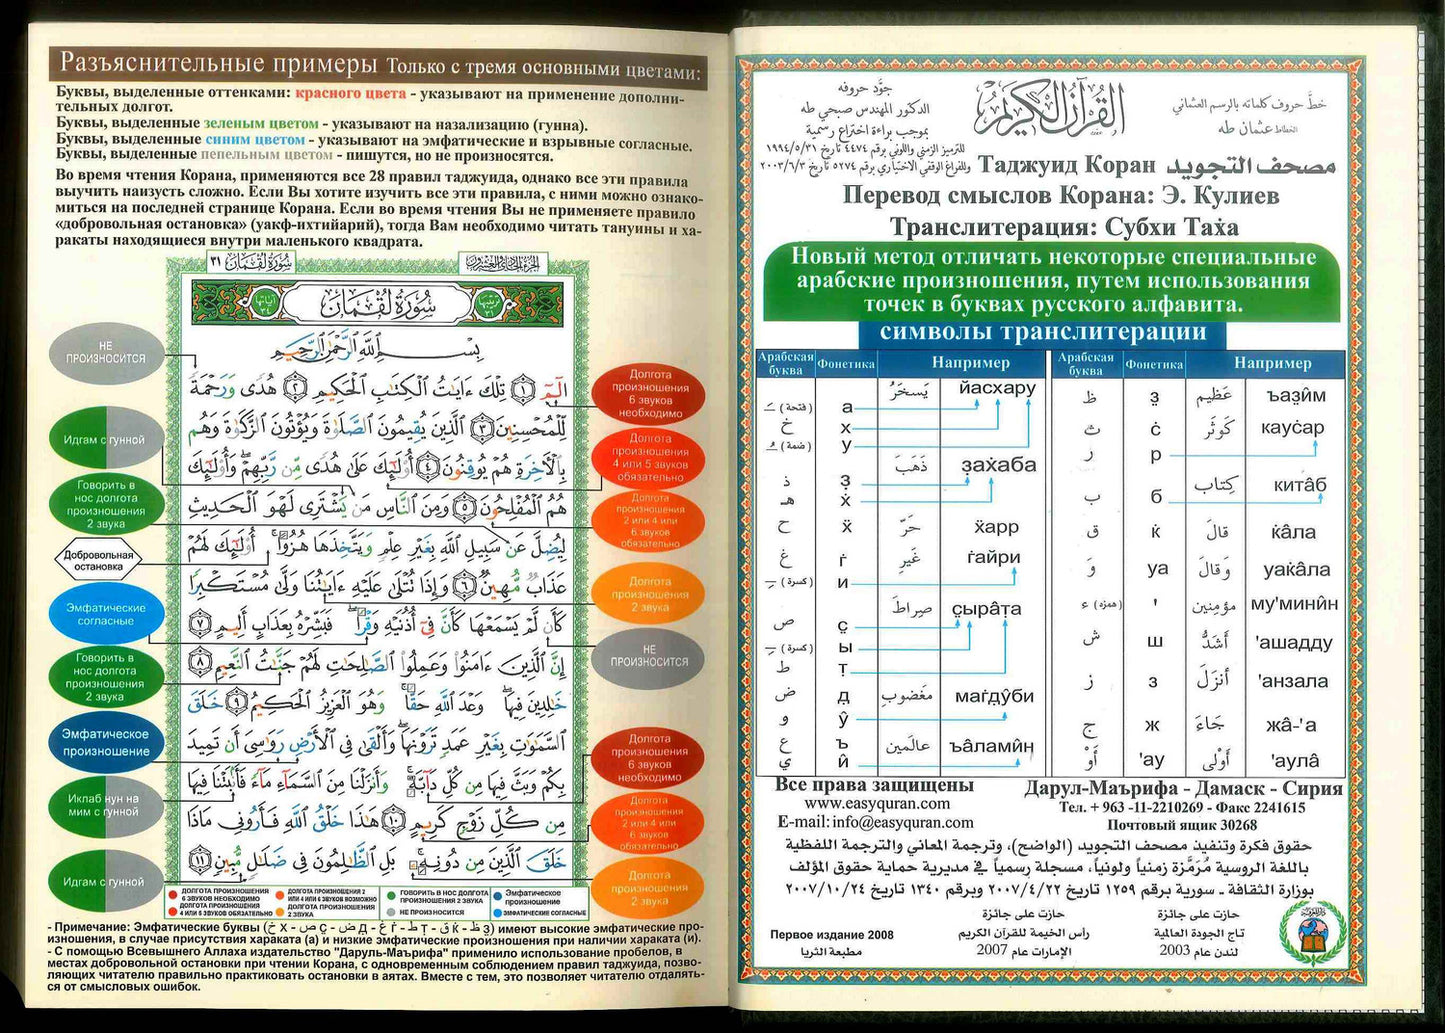 Разъяснительные примеры Только с тремя основными цветами:
Буквы, выделенные оттенками: красного цвета - указывают на применение дополни-
тельных долгот.
Буквы, выделенные зеленым цветом - указывают на назализацию (гунна).
Буквы, выделенные синим цветом - указывают на эмфатические и взрывные согласные.
Буквы, выделенные пепельным цветом - пишутся, но не произносятся.
Во время чтения Корана, применяются все 28 правил таджуида, однако все эти правила
выучить наизусть сложно. Если Вы хотите изучить все эти правила, с ними можно ознако-
миться на последней странице Корана. Если во время чтения Вы не применяете правило
«добровольная остановка» (уакф-ихтийарий), тогда Вам необходимо читать тануины и ха-
ракаты находящиеся внутри маленького квадрата.
سُورَةُ لُقْمَان ٣١
الجزء الحادي والعشرون
آياتها ٣٤
سُورَةُ لُقْمَانَ
ترتيبها ٣١
بِسْمِ ٱللَّهِ ٱلرَّحْمَٰنِ ٱلرَّحِيمِ
الٓمٓ ١ تِلْكَ ءَايَٰتُ ٱلْكِتَٰبِ ٱلْحَكِيمِ ٢ هُدًى وَرَحْمَةً
لِّلْمُحْسِنِينَ ٣ ٱلَّذِينَ يُقِيمُونَ ٱلصَّلَوٰةَ وَيُؤْتُونَ ٱلزَّكَوٰةَ وَهُم
بِٱلْأَخِرَةِ هُمْ يُوقِنُونَ ٤ أُوْلَٰٓئِكَ عَلَىٰ هُدًى مِّن رَّبِّهِمْ وَأُوْلَٰٓئِكَ
هُمُ ٱلْمُفْلِحُونَ ٥ وَمِنَ ٱلنَّاسِ مَن يَشْتَرِى لَهْوَ ٱلْحَدِيثِ
لِيُضِلَّ عَن سَبِيلِ ٱللَّهِ بِغَيْرِ عِلْمٍ وَيَتَّخِذَهَا هُزُوًا أُوْلَٰٓئِكَ لَهُمْ
عَذَابٌ مُّهِينٌ ٦ وَإِذَا تُتْلَىٰ عَلَيْهِ ءَايَٰتُنَا وَلَّىٰ مُسْتَكْبِرًا
كَأَن لَّمْ يَسْمَعْهَا كَأَنَّ فِىٓ أُذُنَيْهِ وَقْرًا فَبَشِّرْهُ بِعَذَابٍ أَلِيمٍ ٧
إِنَّ ٱلَّذِينَ ءَامَنُوا۟ وَعَمِلُوا۟ ٱلصَّٰلِحَٰتِ لَهُمْ جَنَّٰتُ ٱلنَّعِيمِ ٨
خَٰلِدِينَ فِيهَا وَعْدَ ٱللَّهِ حَقًّا وَهُوَ ٱلْعَزِيزُ ٱلْحَكِيمُ ٩ خَلَقَ
ٱلسَّمَٰوَٰتِ بِغَيْرِ عَمَدٍ تَرَوْنَهَا وَأَلْقَىٰ فِى ٱلْأَرْضِ رَوَٰسِىَ أَن تَمِيدَ
بِكُمْ وَبَثَّ فِيهَا مِن كُلِّ دَآبَّةٍ وَأَنزَلْنَا مِنَ ٱلسَّمَآءِ مَآءً فَأَنۢبَتْنَا فِيهَا
مِن كُلِّ زَوْجٍ كَرِيمٍ ١٠ هَٰذَا خَلْقُ ٱللَّهِ فَأَرُونِى مَاذَا
خَلَقَ ٱلَّذِينَ مِن دُونِهِ بَلِ ٱلظَّٰلِمُونَ فِى ضَلَٰلٍ مُّبِينٍ ١١
НЕ
ПРОИЗНОСИТСЯ
Идгам с гунной
Говорить в
нос долгота
произношения
2 звука
Добровольная
остановка
Эмфатические
согласные
Говорить в
нос долгота
произношения
2 звука
Эмфатическое
произношение
Иклаб нун на
мим с гунной
Идгам с гунной
Долгота
произношения
6 звуков
необходимо
Долгота
произношения
4 или 5 звуков
обязательно
Долгота
произношения
2 или 4 или
6 звуков
обязательно
Долгота
произношения
2 звука
НЕ
ПРОИЗНОСИТСЯ
Долгота
произношения
6 звуков
необходимо
Долгота
произношения
2 или 4 или
6 звуков
обязательно
Долгота
произношения
2 звука
ДОЛГОТА ПРОИЗНОШЕНИЯ
6 ЗВУКОВ НЕОБХОДИМО
ДОЛГОТА ПРОИЗНОШЕНИЯ
4 ИЛИ 5 ЗВУКОВ ОБЯЗАТЕЛЬНО
ДОЛГОТА ПРОИЗНОШЕНИЯ 2
ИЛИ 4 ИЛИ 6 ЗВУКОВ ВОЗМОЖНО
ДОЛГОТА ПРОИЗНОШЕНИЯ
2 ЗВУКА
ГОВОРИТЬ В НОС ДОЛГОТА
ПРОИЗНОШЕНИЯ 2 ЗВУКА
НЕ ПРОИЗНОСИТСЯ
Эмфатическое
произношение
ЭМФАТИЧЕСКИЕ СОГЛАСНЫЕ
- Примечание: Эмфатические буквы (خ Х - ص С̣ - ض Д - غ Г̇ - ط Т̣ - ق К̇ - ظ З̣) имеют высокие эмфатические про-
изношения, в случае присутствия хараката (а) и низкие эмфатические произношения при наличии хараката (и).
- С помощью Всевышнего Аллаха издательство "Даруль-Маърифа" применило использование пробелов, в
местах добровольной остановки при чтении Корана, с одновременным соблюдением правил таджуида, позво-
ляющих читателю правильно практиковать остановки в аятах. Вместе с тем, это позволяет читателю отдалять-
ся от смысловых ошибок.
جوَّد حروفه
الدكتور المهندس صبحي طه
بموجب براءة اختراع رسمية
للترميز الزمني واللوني برقم ٤٤٧٤ تاريخ ١٩٩٤/٥/٣١
وللفراغ الوقفي الاختياري برقم ٥٢٧٤ تاريخ ٢٠٠٣/٦/٣
القرآن الكريم
خطَّ حروف كلماته بالرسم العثماني
الخطاط عثمان طه
Таджуид Коран مصحف التجويد
Перевод смыслов Корана: Э. Кулиев
Транслитерация: Субхи Таха
Новый метод отличать некоторые специальные
арабские произношения, путем использования
точек в буквах русского алфавита.
символы транслитерации
Арабская буква Фонетика Например
(فتحة) а يَسخَرُ йасхару
خ х
(ضمة) у
ذ з̣ ذَهَبَ з̣ах̇аба
هـ х̇
ح ẍ حَرّ ẍарр
غ г̇ غَيرِ г̇айри
(كسرة) и
ص с̣ صِراطَ с̣ырâт̣а
(كسرة) ы
ط т̣
ض д مَغضوبِ маг̇дӯби
و ŷ
ع ъ عالَمين ъâламӣн
ي й̂
Арабская буква Фонетика Например
ظ з̱ عَظيم ъаз̱îм
ث с̇ كَوثَر каус̇ар
ر р
ب б كِتاب китâб
ق к̇ قالَ к̇âла
وَ уа وَقالَ уак̇âла
ء (همزة) ' مؤمِنين му'минîн
ش ш أَشَدُّ 'ашадду
ز з أنزَلَ 'анзала
ج ж جَاءَ жâ-'а
أَوْ 'ау أَوْلى 'аулâ
Все права защищены
www.easyquran.com
E-mail: info@easyquran.com
Дарул-Маърифа - Дамаск - Сирия
Тел. + 963 -11-2210269 - Факс 2241615
Почтовый ящик 30268
حقوق فكرة وتنفيذ مصحف التجويد (الواضح)، وترجمة المعاني والترجمة اللفظية
باللغة الروسية مُرَمَّزة زمنياً ولونياً، مسجلة رسمياً في مديرية حماية حقوق المؤلف
بوزارة الثقافة ـ سورية برقم ١٢٥٩ تاريخ ٢٠٠٧/٤/٢٢ وبرقم ١٣٤٠ تاريخ ٢٠٠٧/١٠/٢٤
Первое издание 2008
مطبعة الثريا
حازت على جائزة
رأس الخيمة للقرآن الكريم
الإمارات عام 2007
حازت على جائزة
تاج الجودة العالمية
لندن عام 2003